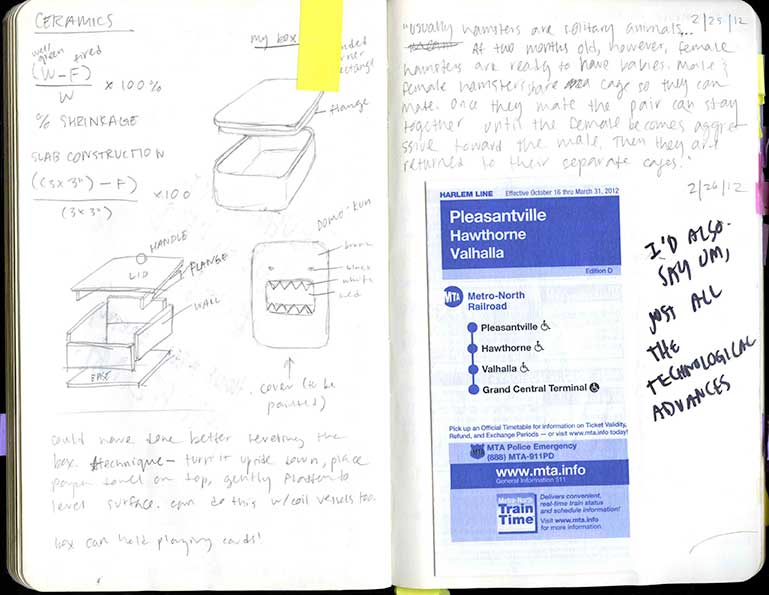 CERAMICS
well
green fired
(W-F)
W
x 100%
% SHRINKAGE
SLAB CONSTRUCTION
((3x3") - F)
(3x3")
x100
my box
flange
HANDLE
LID
FLANGE
WALL
BASE
DOMO-KUN
brown
black
white
red
cover (to be
painted)
could have done better leveling the
box. technique - turn it upside down, place
paper towel on top, gently flatten to
level surface. can do this w/coil vessels too.
box can hold playing cards!
2/25/12
"Usually hamsters are solitary animals...
At two months old, however, female
hamsters are ready to have babies. Male &
female hamsters share a cage so they can
mate. Once they mate the pair can stay
together until the female becomes aggre-
ssive toward the male. Then they are
returned to their separate cages."
2/26/12
HARLEM LINE Effective October 16 thru March 31, 2012
Pleasantville
Hawthorne
Valhalla
Edition D
MTA Metro-North
Railroad
Pleasantville
Hawthorne
Valhalla
Grand Central Terminal
Pick up an Official Timetable for information on Ticket Validity,
Refund, and Exchange Periods — or visit www.mta.info today!
MTA Police Emergency
(888) MTA-911PD
www.mta.info
General Information 511
Metro-North
Train
Time
Delivers convenient,
real-time train status
and schedule information!
Visit www.mta.info
for more information.
I'D ALSO
SAY UM,
JUST ALL
THE
TECHNOLOGICAL
ADVANCES